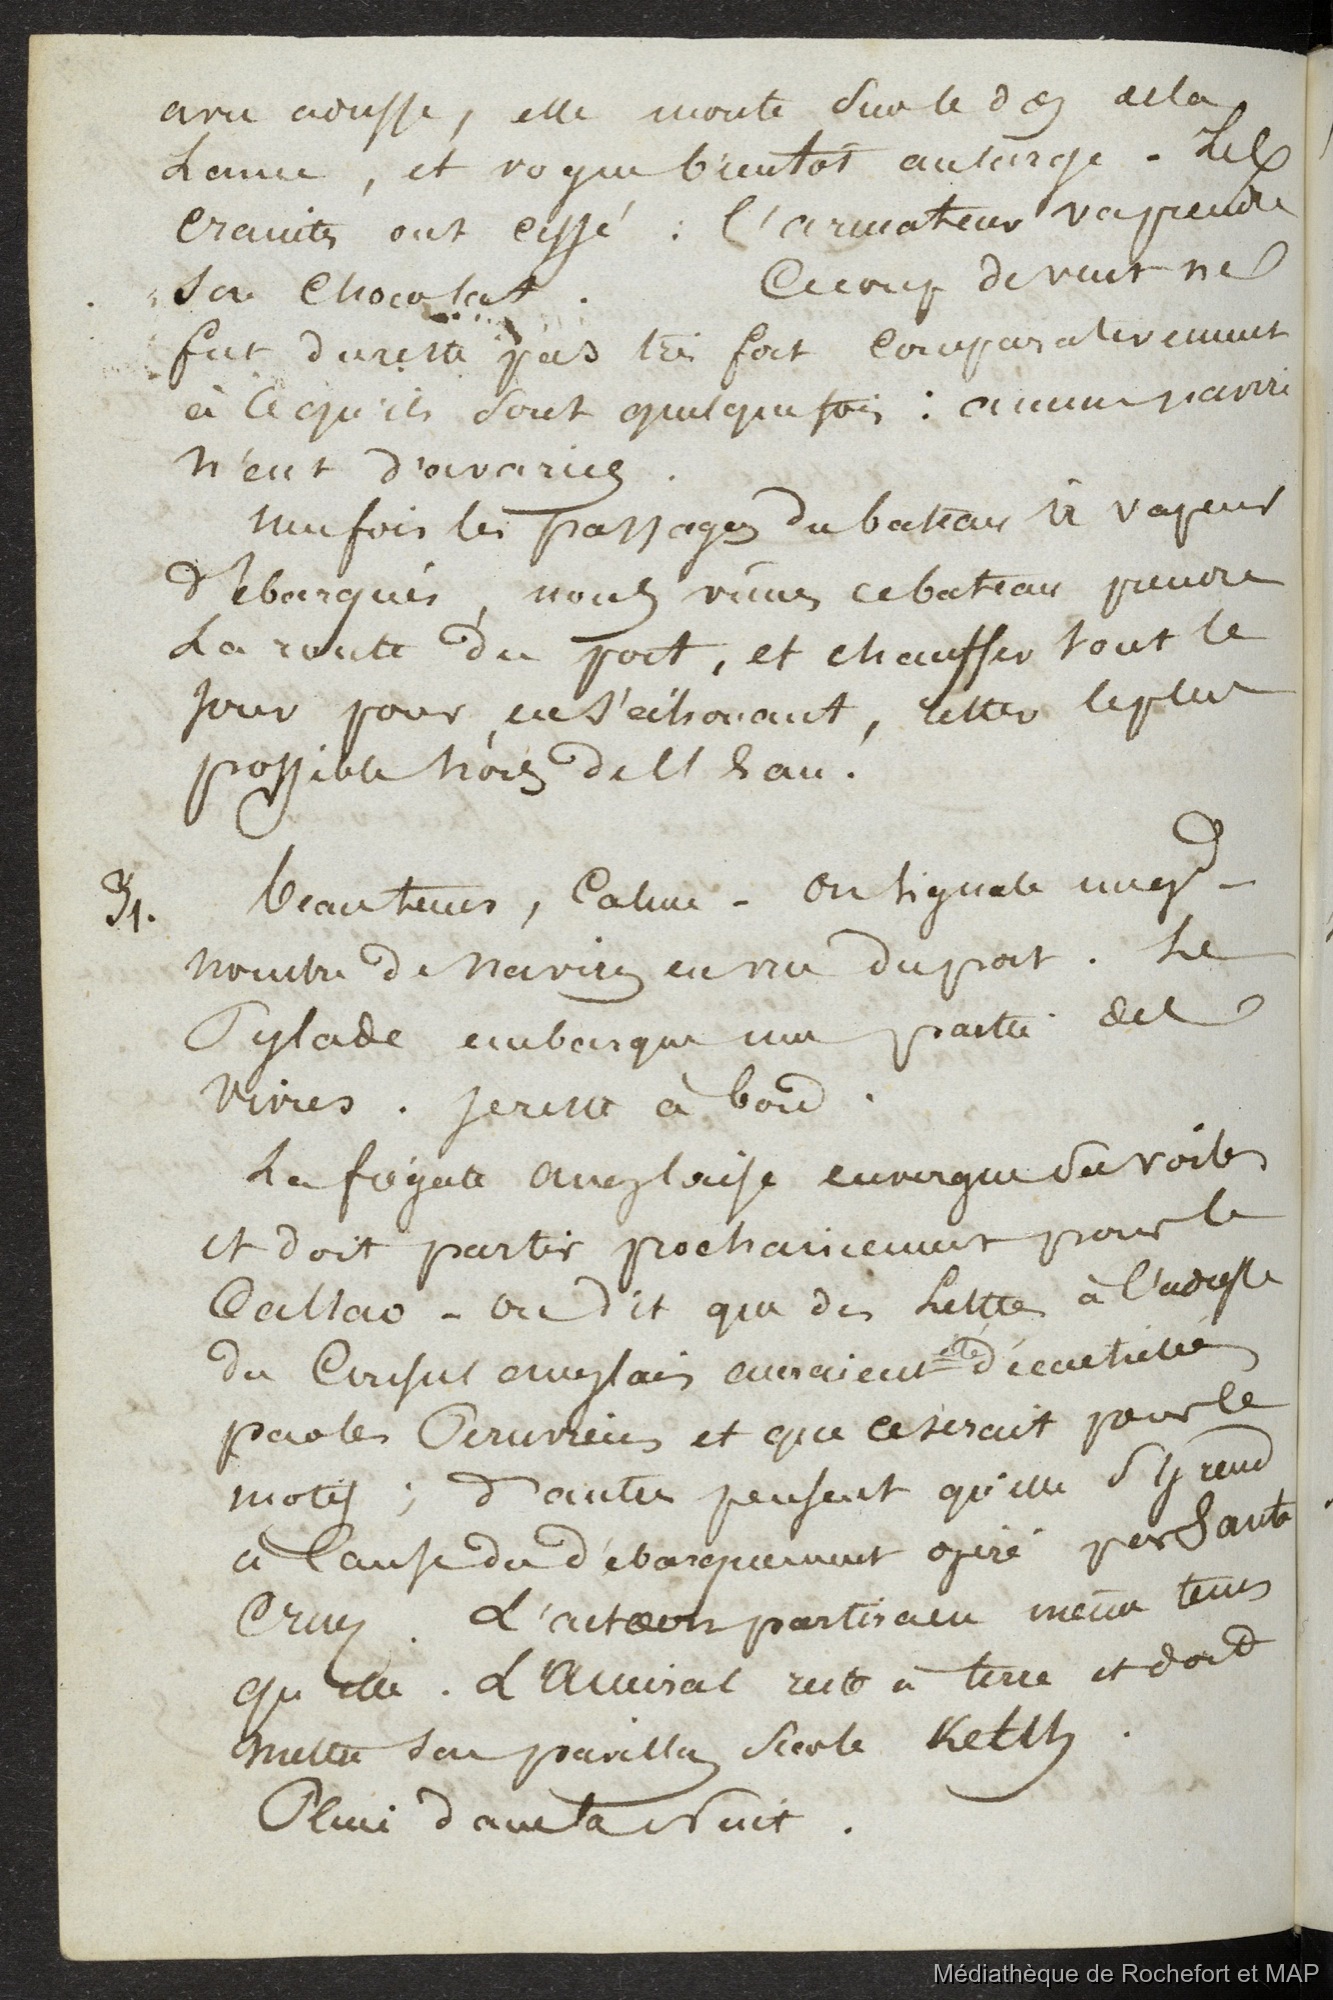 avec adresse, elle monte sur le dos de la
Lame, et vogue bientôt au large - Les
craintes ont cessé : l'armateur va prendre
son chocolat. Ce coup de vent ne
fut du reste pas très fort comparativement
à ce qu'ils sont quelquefois : aucun navire
n'eut d'avaries.
une fois les passagers du bateau à vapeur
débarqués, nous vîmes ce bateau prendre
La route du port, et chauffer tout le
jour pour, en s'échouant, rester le plus
possible hors de l'Eau.
31. beau tems, Calme - on signale un gd-
nombre de Navires en vue du port. Le
Pylade embarque une partie des
vivres. je reste à bord.
La frégate anglaise envergue ses voiles
et doit partir prochainement pour le
Callao - on dit que des Lettres à l'adresse
du Consul anglais auraient été décachetées
par les Péruviens et que ce serait pour le
motif ; d'autres pensent qu'elle s'y rend
à Cause du débarquement opéré par Santa
Cruz. L'actaeon partira en même tems
qu'elle. L'Amiral reste à terre et doit
mettre son pavillon sur le
Pluie dans la Nuit.
Médiathèque de Rochefort et MAP